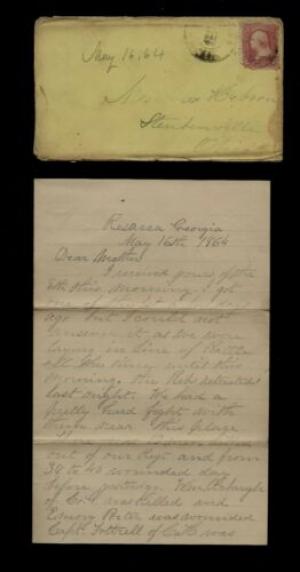 May 16, 64
Steubenville
Ohio
Resacca Georgia
May 16th 1864
Dear Mother
I received yours of the
8th this morning. I got
one of the
ago but I could not
answer it as we were
laying in line of Battle
all the time until this
morning. The Reb retreated
last night. We had a
pretty hard fight with
them near this place
out of our Regt and from
30 to 40 wounded day
before yesterday.
of Co was killed and
was wounded
Capt. of Co was